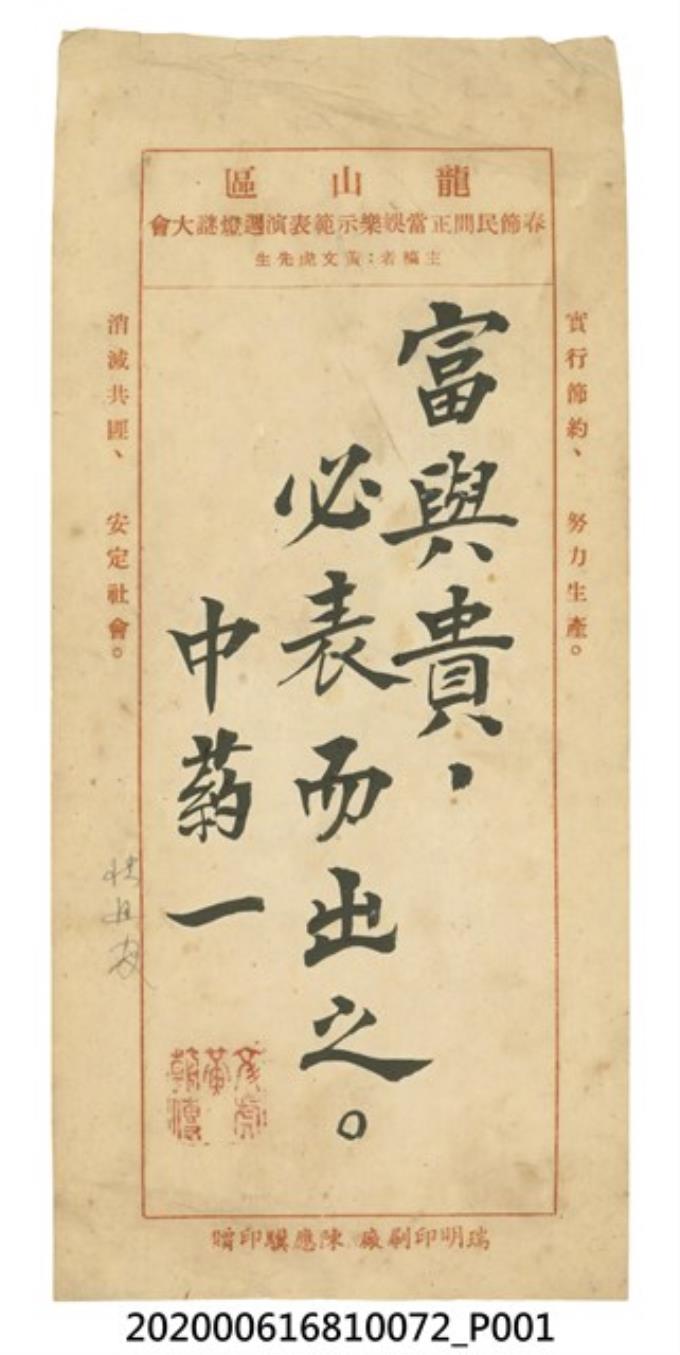 龍山區
春節民間正當娛樂示範表演週燈謎大會
主稿者：黃文虎先生
實行節約、努力生產。
富與貴，
必表而出之。
中药一
消滅共匪、安定社會。
瑞明印刷廠 陳應驥印贈
202000616810072_P001